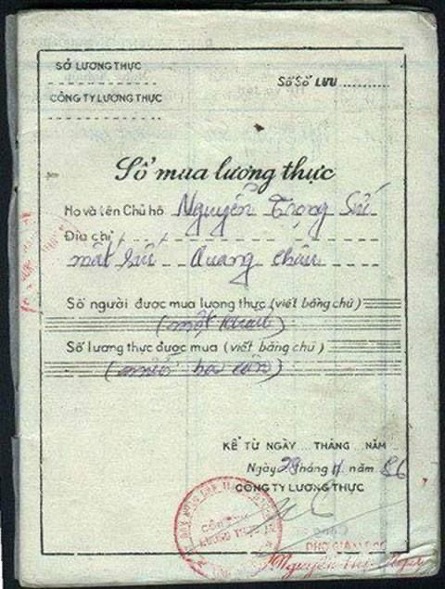 SỞ LƯƠNG THỰC
Số Sổ LƯU
CÔNG TY LƯƠNG THỰC
Sổ mua lương thực
Họ và tên Chủ hộ Nguyễn Trọng Sử
Địa chỉ
Quang châu
Số người được mua lương thực (viết bằng chữ)
(một khẩu)
Số lương thực được mua (viết bằng chữ)
(mười ba cân)
KỂ TỪ NGÀY ... THÁNG ... NĂM
Ngày 28 tháng 4 năm 86
CÔNG TY LƯƠNG THỰC
PHÓ GIÁM ĐỐC
Nguyễn